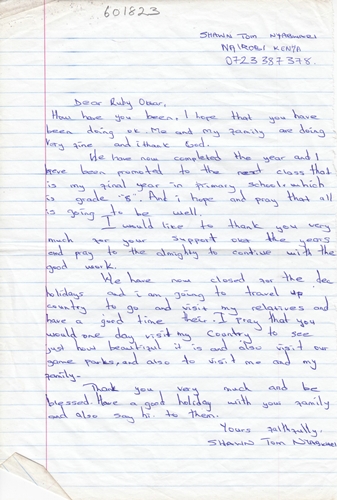 601823
SHAWN TOM NYABWARI
NAIROBI KENYA
0723387378.
Dear Ruby Omar,
How have you been, I hope that you have
been doing ok. Me and my family are doing
very fine and i thank God.
We have now completed the year and I
have been promoted to the next class that
is my final year in primary school which
is grade "8". And i hope and pray that all
is going to be well.
I would like to thank you very
much for your support over the years
and pray to the almighty to continue with the
good work.
We have now closed for the dec
holidays and i am going to travel up
country to go and visit my relatives and
have a good time their. I pray that you
would one day visit my Country to see
just how beautiful it is and also visit our
game parks, and also to visit me and my
family.
Thank you very much and be
blessed. Have a good holiday with your family
and also say hi to them.
Yours faithfully,
SHAWN TOM NYABWARI